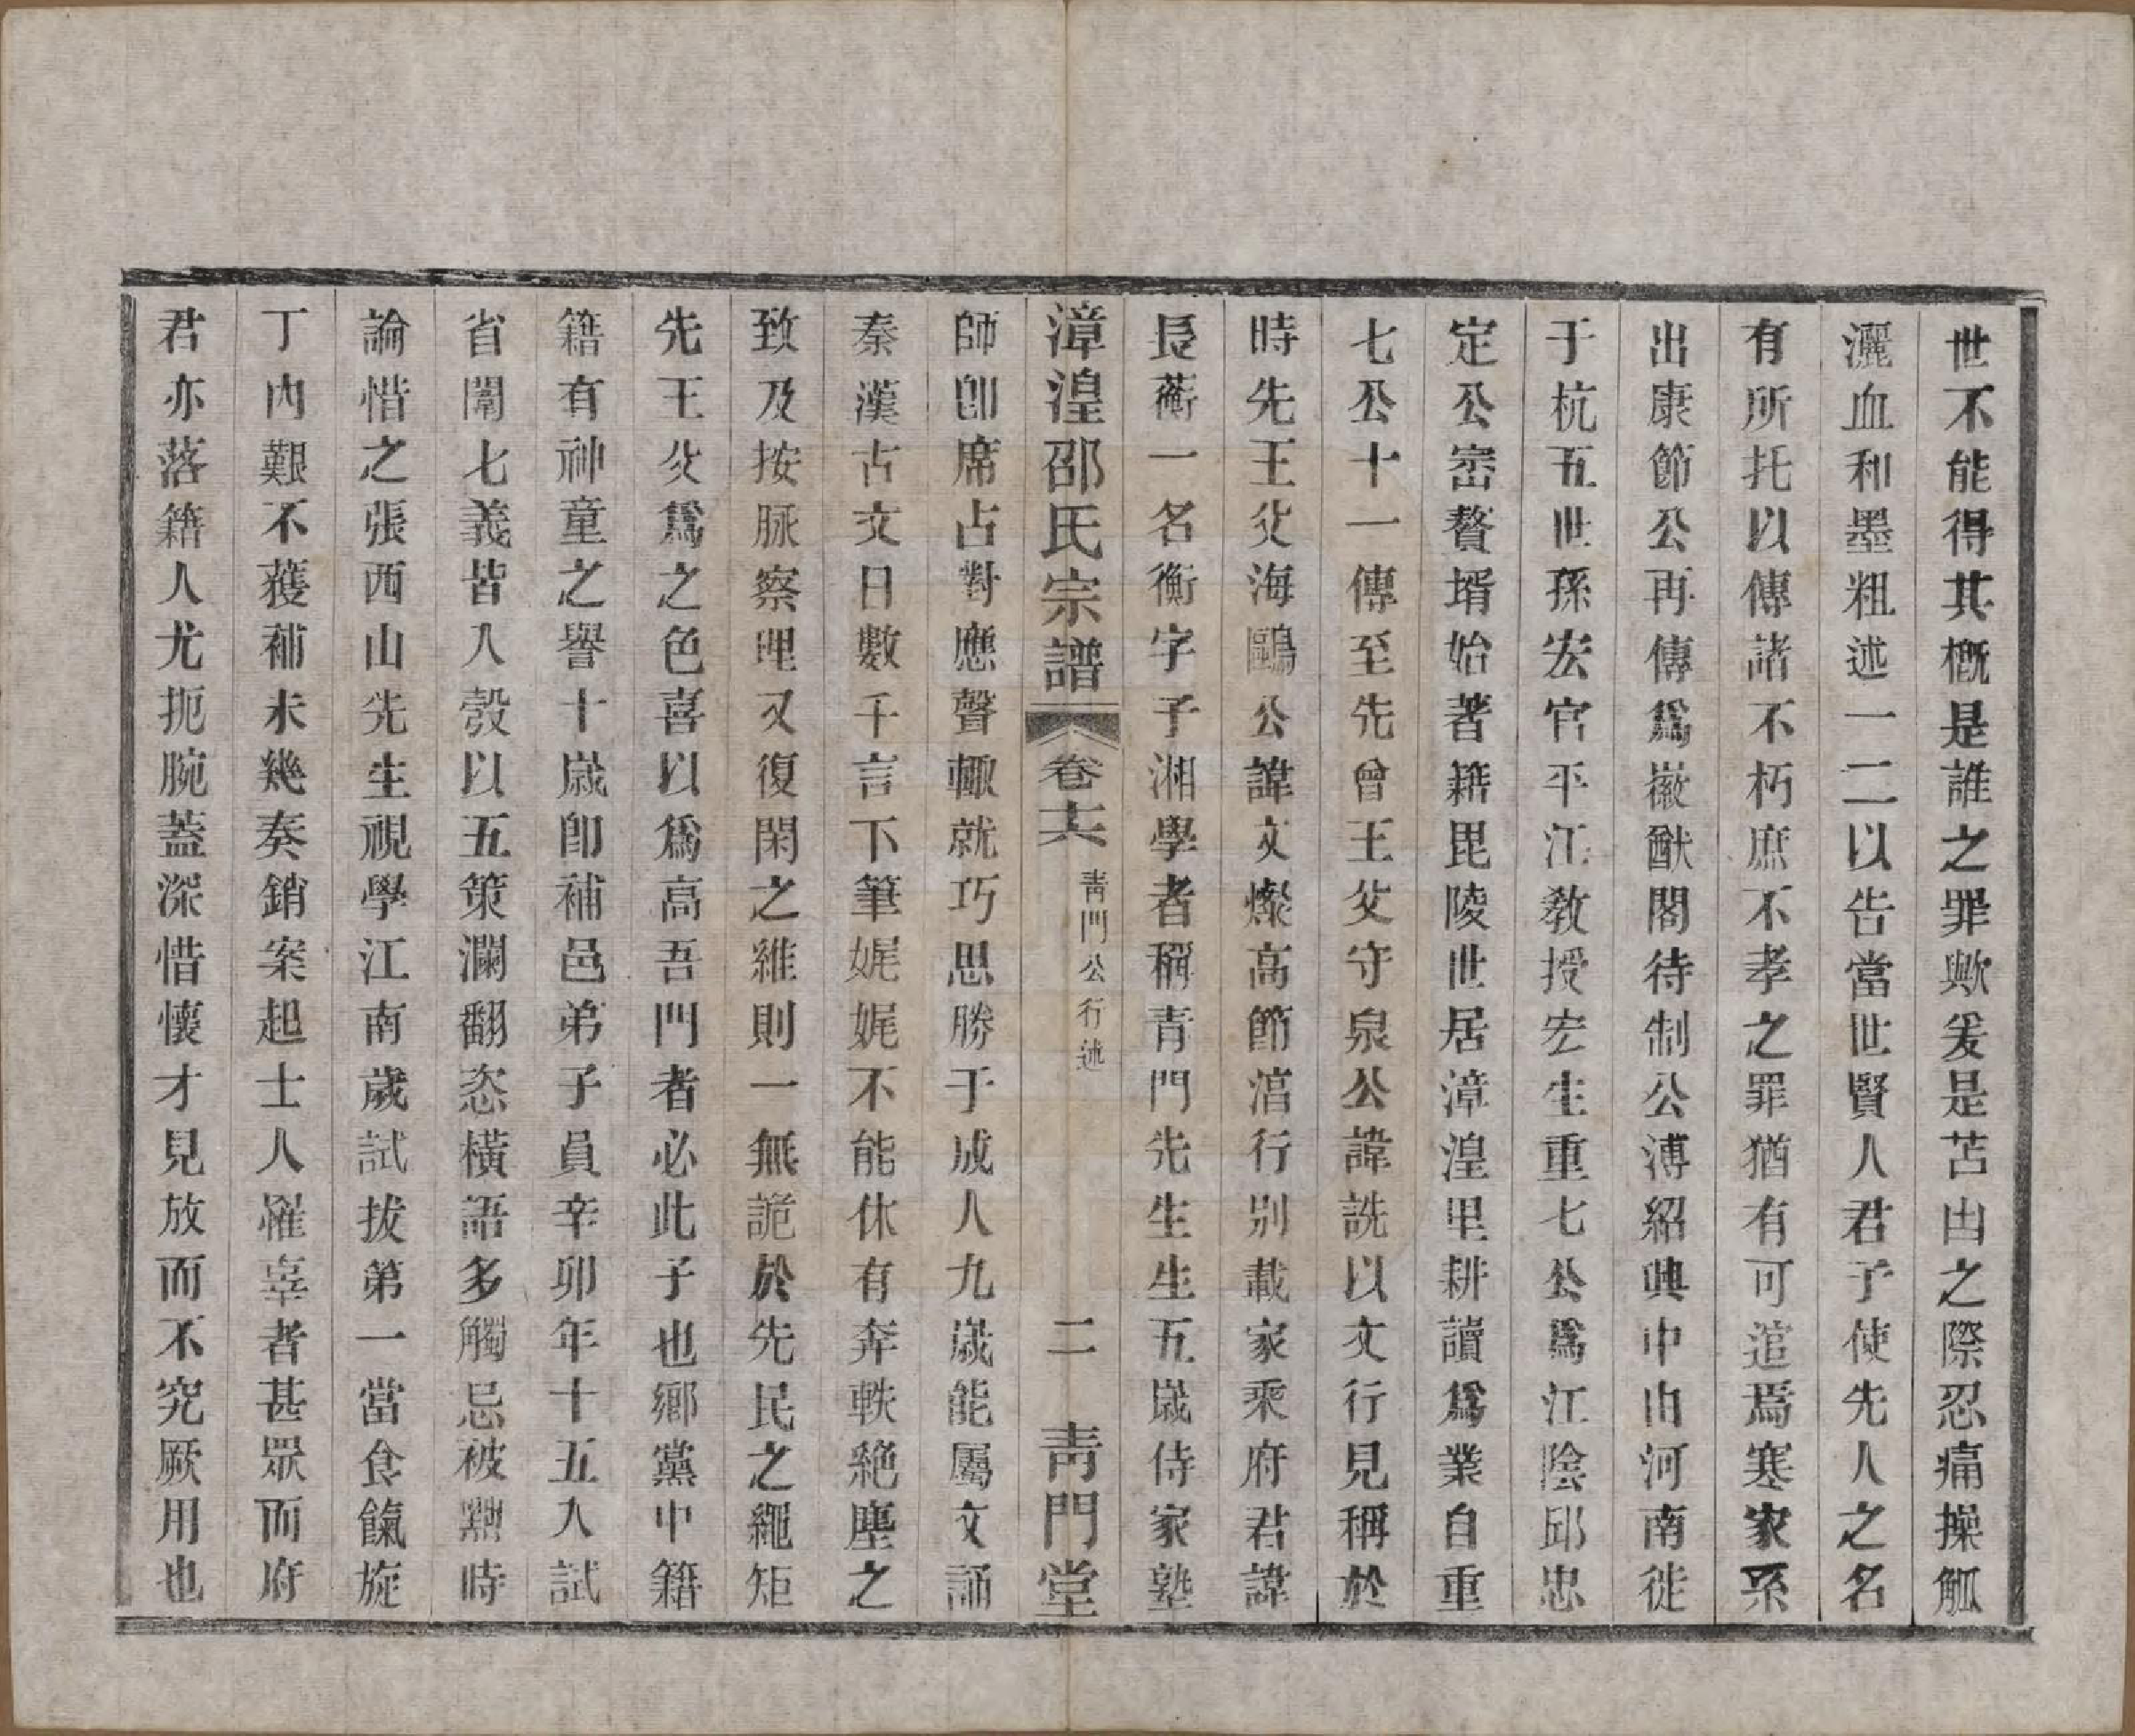 世不能得其概是誰之罪歟爰是苫凷之際忍痛操觚
灑血和墨粗述一二以告當世賢人君子使先人之名
有所托以傳諸不朽庶不孝之罪猶有可逭焉寒家系
出康節公再傳爲徽猷閣待制公溥紹興中由河南徙
于杭五世孫宏官平江敎授宏生重七公爲江陰邱忠
定公崈贅壻始著籍毘陵世居漳湟里耕讀爲業自重
七公十一傳至先曾王父守泉公諱詵以文行見稱於
時先王父海鷗公諱文燦高節湻行别載家乘府君諱
長蘅一名衡字子湘學者稱青門先生生五歲侍家塾
漳湟邵氏宗譜 卷十六 青門公行述 二 青門堂
師卽席占對應聲輙就巧思勝于成人九歲能屬文誦
秦漢古文日數千言下筆娓娓不能休有奔軼絶塵之
致及按脉察理又復閑之維則一無詭於先民之繩矩
先王父爲之色喜以爲高吾門者必此子也鄉黨中籍
籍有神童之譽十歲卽補邑弟子員辛卯年十五入試
省闈七義皆入彀以五策瀾翻恣橫語多觸忌被黜時
論惜之張西山先生視學江南歲試拔第一當食餼旋
丁內艱不獲補未幾奏銷案起士人罹辜者甚眾而府
君亦落籍人尤扼腕蓋深惜懷才見放而不究厥用也